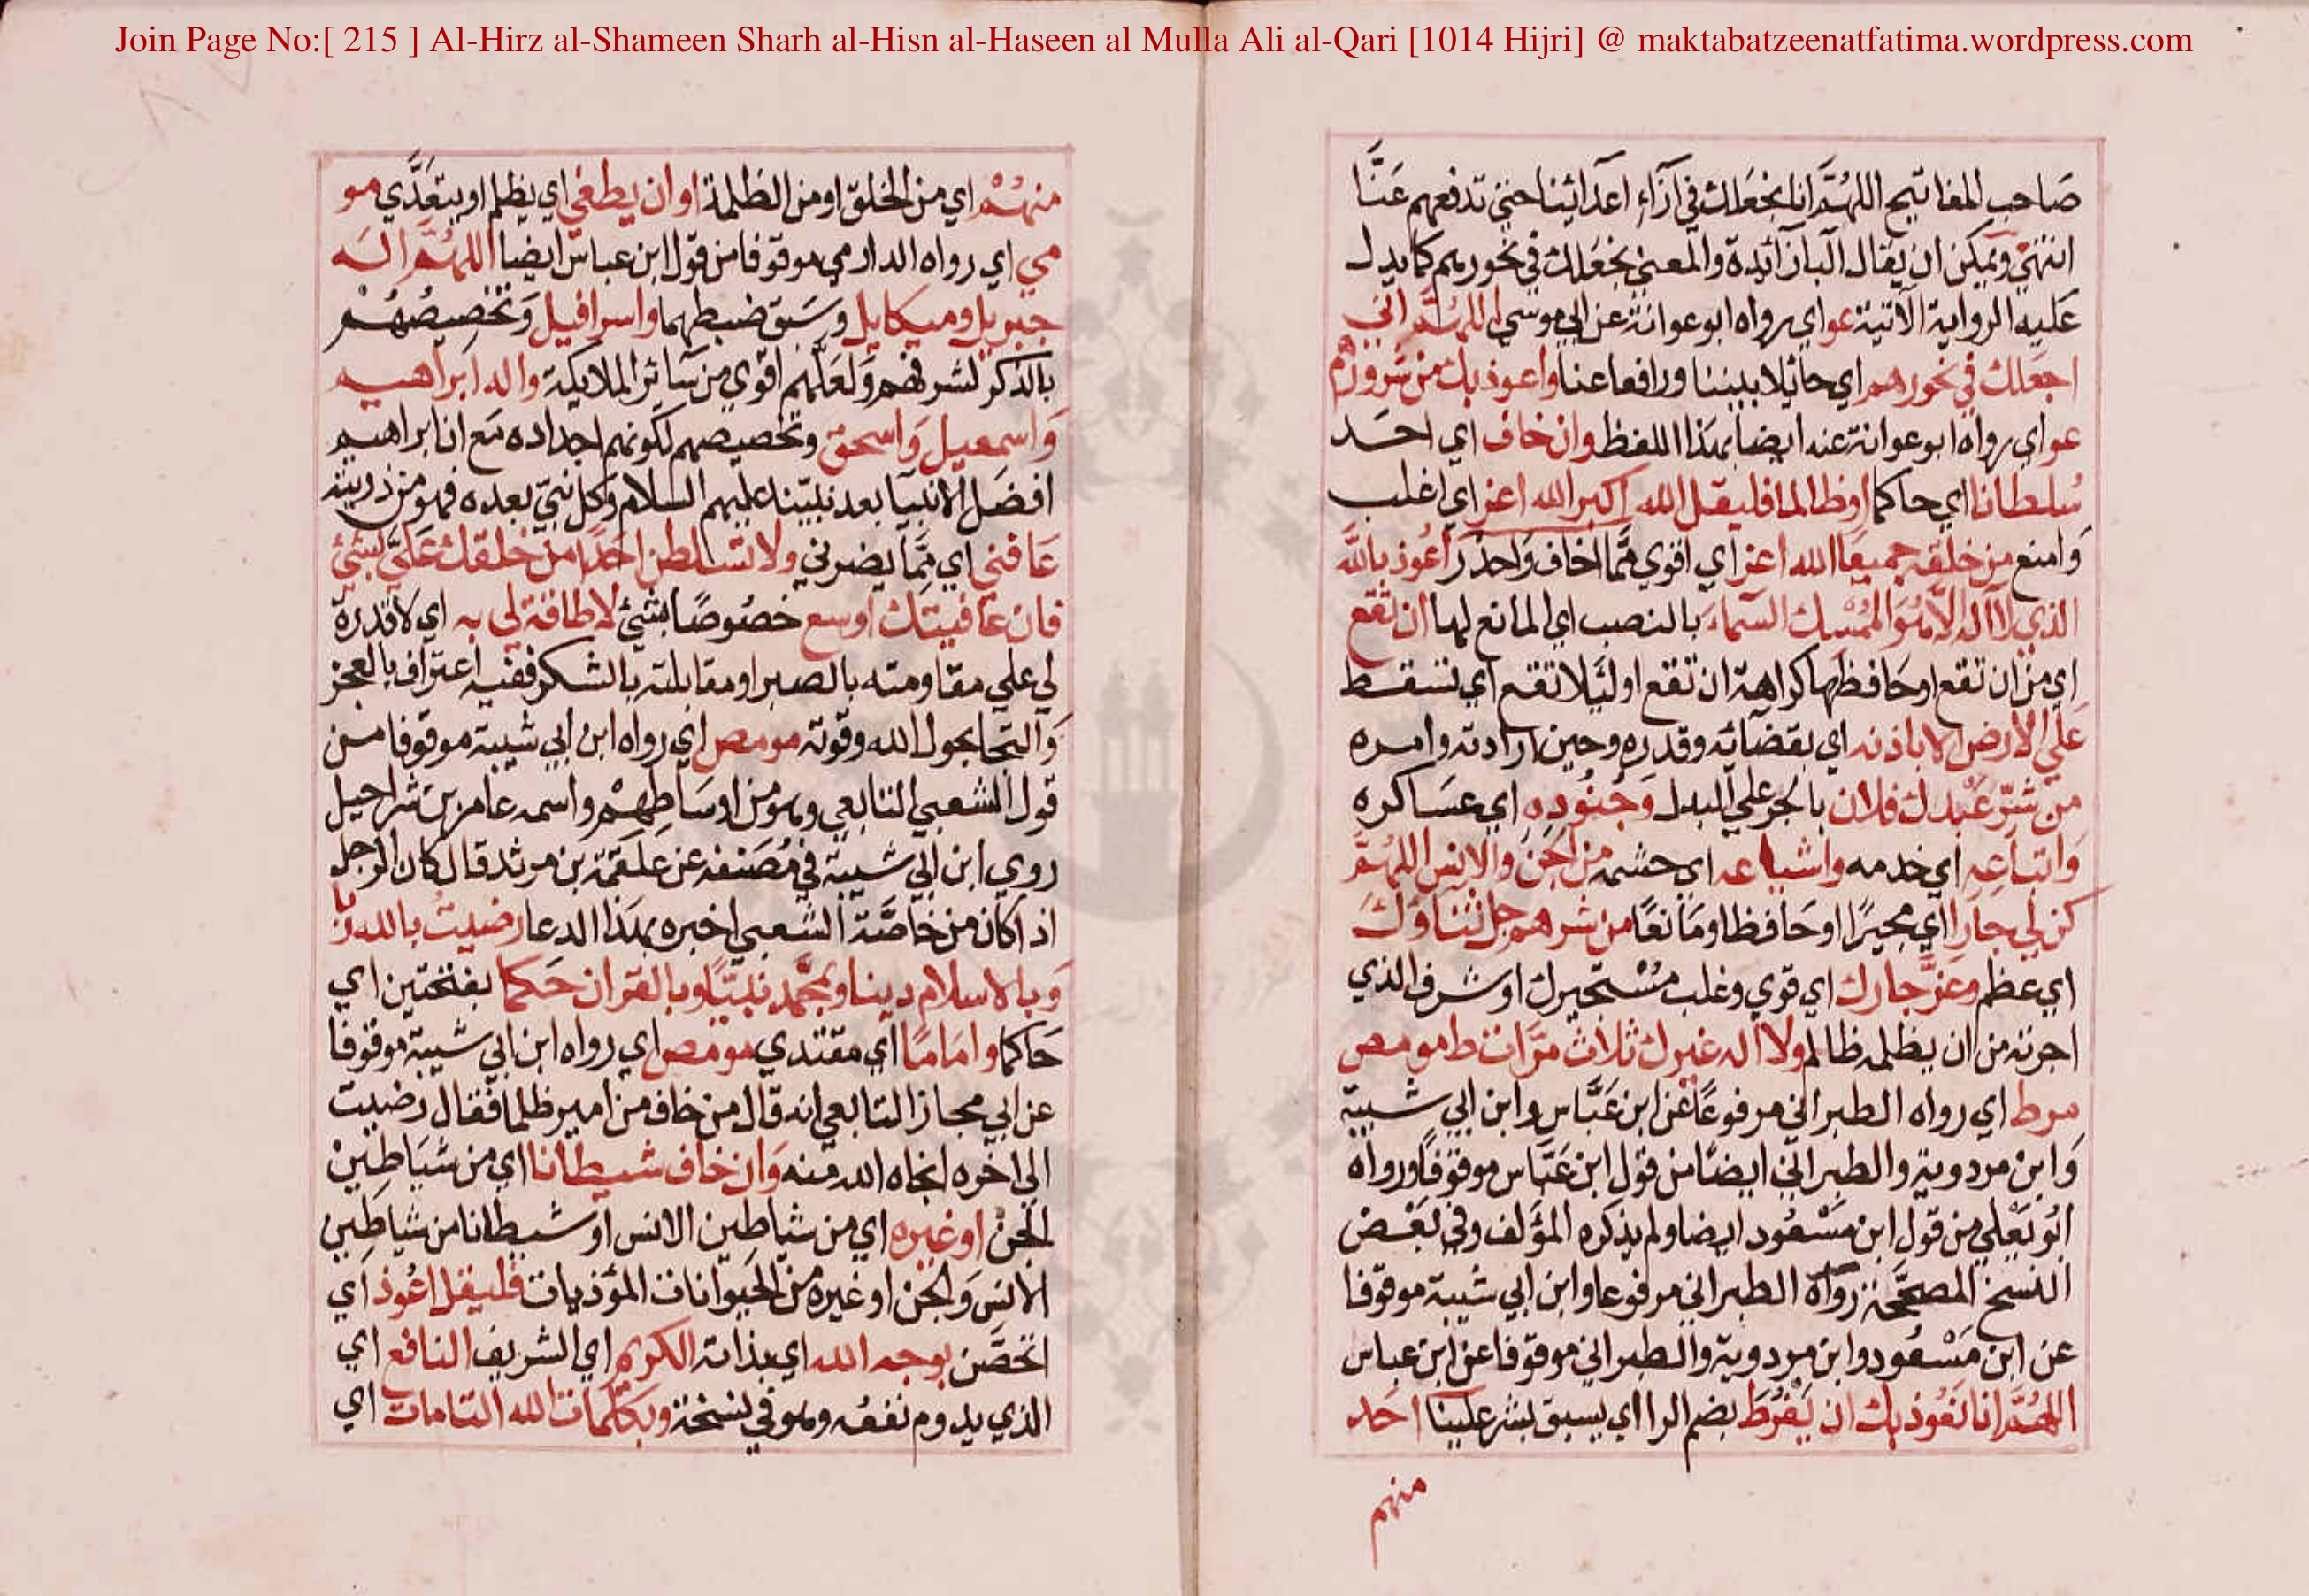 Join Page No:[ 215 ] Al-Hirz al-Shameen Sharh al-Hisn al-Haseen al Mulla Ali al-Qari [1014 Hijri] @ maktabatzeenatfatima.wordpress.com
صَاحب المفاتيح اللهُمَّ انا نجْعَلك في اٰزاءِ اعدائنا حتى تدفعهم عَنَّا
انتهىٰ ويمكن ان يقال البا زائدة والمعنى نجعَلك في نحورهم كما يدل
عَليه الرواية الآتية عو اي رواه ابوعوانة عن ابي موسى اللهُمَّ اني
اجعَلك في نحورهم اي حائلا بيننا ورافعا عنا واعوذ بك من شرورهم
عو اي رواه ابوعوانة عنه ايضا بهذا اللفظ وان خاف اي احَد
سُلطانا اي حاكما او ظالما فليقل الله اكبر الله اعز اي اغلب
وَامنع من خلقه جميعًا الله اعز اي اقوى ممَّا اخاف وَاحذر اَعُوذ بالله
الذي لا اله الّا هُوَ المُمْسِك السّماءَ بالنصب اي المانع لها ان تقع
اي من ان تقع او حَافظها كراهة ان تقع او لئلا تقع اي تسقط
عَلى الارض الا باذنه اي بقضائه وقدره وحين ارادته وامره
من شرّ عَبْدك فلان بالجر على البدل وَجُنُودِه اي عسَاكره
وَاتباعه اي خدمه واشياعه اي حشمه من الجن والانس اللهُمَّ
كن لي جارا اي مجيرًا او حَافظا او مَانعًا من شرهم جل ثناؤك
اي عظم وعزَّ جارك اي قوي وغلب مسْتجيرك او شرف الذي
اجرته من ان يظلمه ظالم ولا اله غيرك ثلاث مرَّات ط مو مص
مرط اي رواه الطبراني مرفوعًا عن ابن عَبَّاس وابن ابي شيبة
وَابن مردوية والطبراني ايضًا من قول ابن عَبَّاس موقوفًا ورواه
ابُو يَعْلى من قول ابن مَسْعُود ايضا ولم يذكره المؤلف وفي بَعْض
النسخ المصحَّحة رواه الطبراني مرفوعا وابن ابي شيبة موقوفا
عن ابن مَسْعُود وابن مردوية والطبراني موقوفا عن ابن عباس
اللهُمَّ انا نَعُوذ بك ان يَفْرُطَ بضم الرا اي يسبق بشر علينا احَد
منهم
منهُمْ اي من الخلق او من الظلمة او ان يطغى اي يظلم او يتعَدَّي مو
مي اي رواه الدارمي موقوفا من قول ابن عباس ايضا اللهُمَّ الَه
جبريل وميكايل وسَبق ضبطهما واسرافيل وَتخصيصُهُمْ
بالذكر لشرفهم وَلعَلهُم اقوى من سَائر الملايكة واله ابراهيم
وَاسمعيل وَاسحق وتخصيصهم لكونهم اجداده مَع ان ابراهيم
افضَل الانبيا بعد نبيّنا عليهم السلام وكل نبيّ بعده فهو من ذريته
عَافني اي مِمَّا يضرني ولا تسلطن احَدًا من خلقك عَليَّ بشيْ
فان عَافيتك اوسع خصُوصًا بشئ لا طاقة لي به اي لا قدرة
لي على مقاومته بالصبر او مقابلته بالشكر ففيه اعتراف بالعجز
وَالتجا بحول الله وقوته مو مص اي رواه ابن ابي شيبة موقوفا من
قول الشعبي التابعي وهو من اوسَاطِهمْ واسمه عامر بن شراحيل
روي ابن ابي شيبة في مُصَنفه عن علقَمة بن مرثد قال كان الرجل
اذا كان من خاصَّة الشعبي اخبره بهذا الدعا رضيتُ بالله ربا
وَبالاسلام دينا وبمحَّمد نبيّا وبالقران حَكما بفتحتين اي
حَاكما وامَامًا اي مقتدي مو مص اي رواه ابن ابي شيبة موقوفا
عن ابي مجلز التابعي انه قال من خاف من امير ظلما فقال رضيت
الى اخره انجاه الله منه وَان خاف شيطانا اي من شيَاطِينْ
الجن او غيره اي من شياطين الانس او شيطانا من شياطين
الانس وَالجن او غيره من الحَيوانات المؤذيات فليقل اعُوذ اي
اتحصَّن بوجه الله اي بذاته الكريم اي الشريف النافع اي
الذي يدوم نفعُه وهو في نسخة وبكلمات الله التامات اي